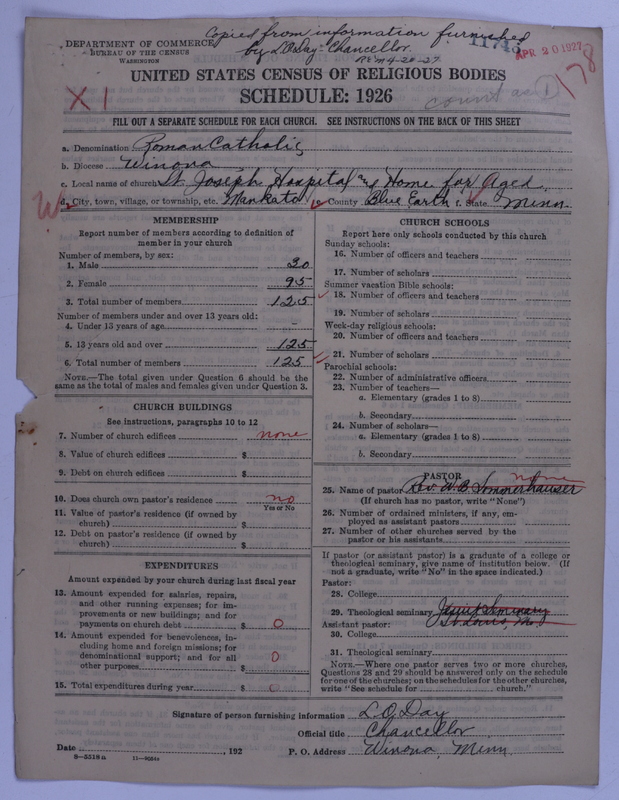 Copied from information furnished
by L.O.Day-Chancellor.
11748
APR 20 1927
178
DEPARTMENT OF COMMERCE
BUREAU OF THE CENSUS
WASHINGTON
UNITED STATES CENSUS OF RELIGIOUS BODIES
X1
SCHEDULE: 1926
count as 1
FILL OUT A SEPARATE SCHEDULE FOR EACH CHURCH. SEE INSTRUCTIONS ON THE BACK OF THIS SHEET
a. Denomination Roman Catholic
b. Diocese Winona
c. Local name of church St. Joseph Hospital and Home for Aged
d. City, town, village, or township, etc. Mankato e. County Blue Earth f. State Minn.
MEMBERSHIP
Report number of members according to definition of
member in your church
Number of members, by sex:
1. Male 30
2. Female 95
3. Total number of members 125
Number of members under and over 13 years old:
4. Under 13 years of age -
5. 13 years old and over 125
6. Total number of members 125
NOTE.—The total given under Question 6 should be the
same as the total of males and females given under Question 3.
CHURCH BUILDINGS
See instructions, paragraphs 10 to 12
7. Number of church edifices none
8. Value of church edifices $
9. Debt on church edifices $
10. Does church own pastor's residence no
Yes or No
11. Value of pastor's residence (if owned by
church) $
12. Debt on pastor's residence (if owned by
church) $
EXPENDITURES
Amount expended by your church during last fiscal year
13. Amount expended for salaries, repairs,
and other running expenses; for im-
provements or new buildings; and for
payments on church debt $ 0
14. Amount expended for benevolences, in-
cluding home and foreign missions; for
denominational support; and for all
other purposes $ 0
15. Total expenditures during year $ 0
CHURCH SCHOOLS
Report here only schools conducted by this church
Sunday schools:
16. Number of officers and teachers
17. Number of scholars
Summer vacation Bible schools:
18. Number of officers and teachers
19. Number of scholars
Week-day religious schools:
20. Number of officers and teachers
21. Number of scholars
Parochial schools:
22. Number of administrative officers
23. Number of teachers—
a. Elementary (grades 1 to 8)
b. Secondary
24. Number of scholars—
a. Elementary (grades 1 to 8)
b. Secondary
PASTOR none
25. Name of pastor Rev. W.B. Sommerhauser
(If church has no pastor, write "None")
26. Number of ordained ministers, if any, em-
ployed as assistant pastors
27. Number of other churches served by the
pastor or his assistants
If pastor (or assistant pastor) is a graduate of a college or
theological seminary, give name of institution below. (If
not a graduate, write "No" in the space indicated.)
Pastor:
28. College
29. Theological seminary Jesuit Seminary
Assistant pastor: St Louis, Mo.
30. College
31. Theological seminary
NOTE.—Where one pastor serves two or more churches,
Questions 28 and 29 should be answered only on the schedule
for one of the churches; on the schedules for the other churches,
write "See schedule for church."
Signature of person furnishing information L.O.Day
Official title Chancellor
Date , 192 P. O. Address Winona, Minn
8—5518a 11—9684a